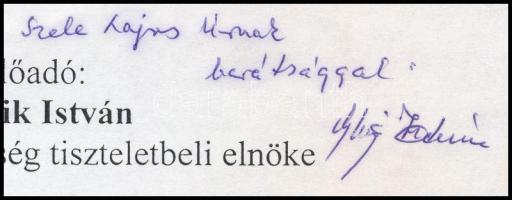 Szele Lajos Úrnak
lőadó:
barátsággal
ik István
ség tiszteletbeli elnöke